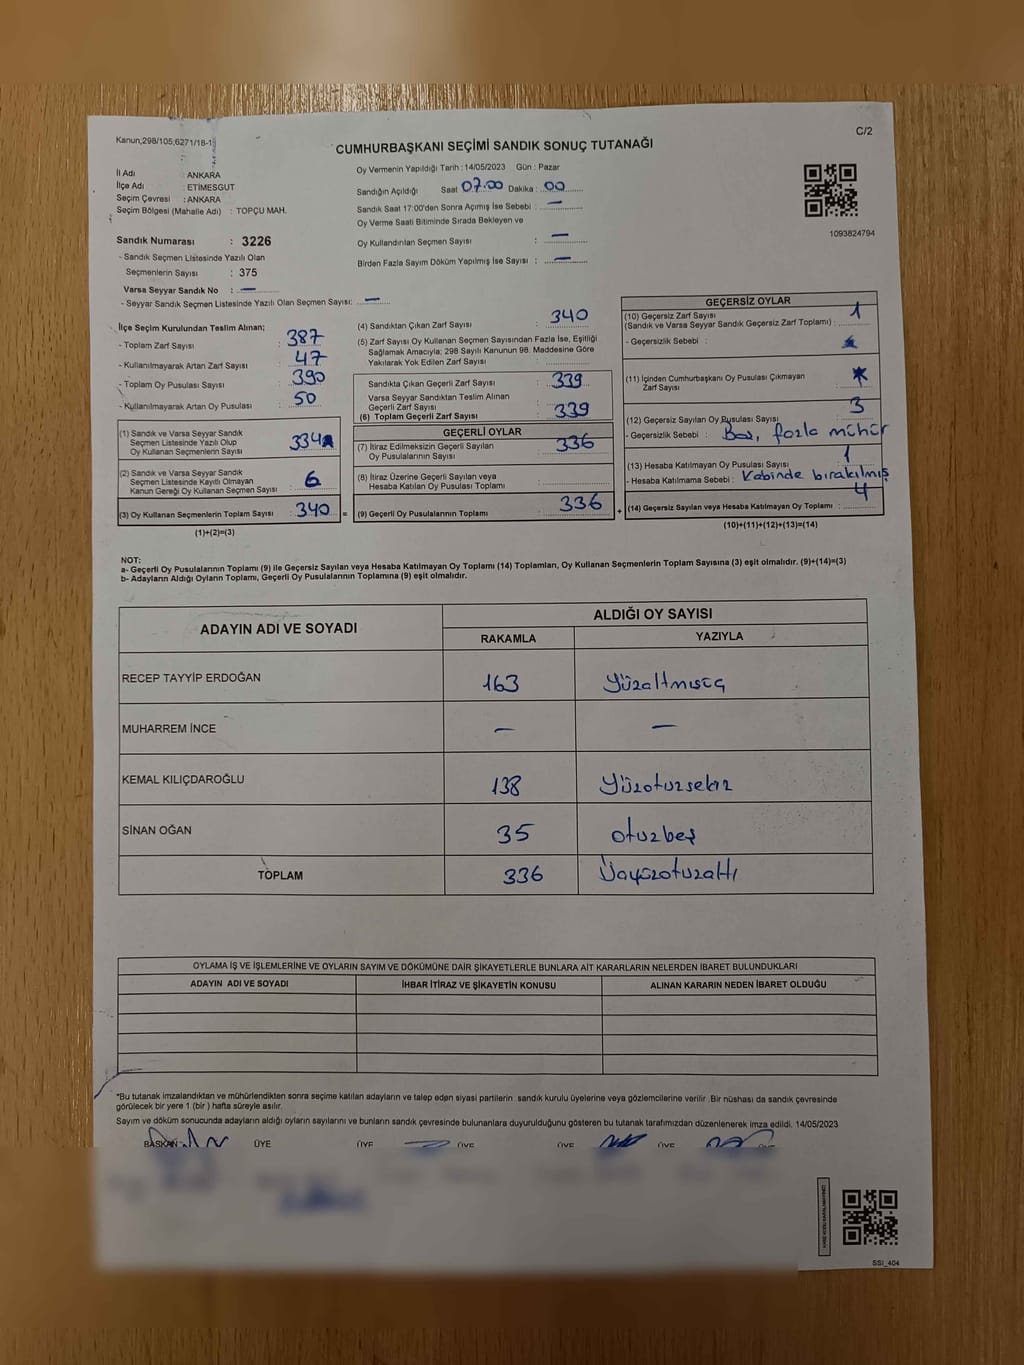 Kanun,298/105,6271/18-1
C/2
CUMHURBAŞKANI SEÇİMİ SANDIK SONUÇ TUTANAĞI
İl Adı : ANKARA
İlçe Adı : ETİMESGUT
Seçim Çevresi : ANKARA
Seçim Bölgesi (Mahalle Adı) : TOPÇU MAH.
Sandık Numarası : 3226
- Sandık Seçmen Listesinde Yazılı Olan
Seçmenlerin Sayısı : 375
Varsa Seyyar Sandık No : —
- Seyyar Sandık Seçmen Listesinde Yazılı Olan Seçmen Sayısı: —
Oy Vermenin Yapıldığı Tarih : 14/05/2023 Gün : Pazar
Sandığın Açıldığı Saat 07:00 Dakika : 00
Sandık Saat 17:00'den Sonra Açımış İse Sebebi : —
Oy Verme Saati Bitiminde Sırada Bekleyen ve
Oy Kullandırılan Seçmen Sayısı : —
Birden Fazla Sayım Döküm Yapılmış İse Sayısı : —
1093824794
İlçe Seçim Kurulundan Teslim Alınan;
- Toplam Zarf Sayısı : 387
- Kullanılmayarak Artan Zarf Sayısı : 47
- Toplam Oy Pusulası Sayısı : 390
- Kullanılmayarak Artan Oy Pusulası : 50
(1) Sandık ve Varsa Seyyar Sandık
Seçmen Listesinde Yazılı Olup
Oy Kullanan Seçmenlerin Sayısı : 334
(2) Sandık ve Varsa Seyyar Sandık
Seçmen Listesinde Kayıtlı Olmayan
Kanun Gereği Oy Kullanan Seçmen Sayısı : 6
(3) Oy Kullanan Seçmenlerin Toplam Sayısı : 340 =
(1)+(2)=(3)
(4) Sandıktan Çıkan Zarf Sayısı : 340
(5) Zarf Sayısı Oy Kullanan Seçmen Sayısından Fazla İse, Eşitliği
Sağlamak Amacıyla; 298 Sayılı Kanunun 98. Maddesine Göre
Yakılarak Yok Edilen Zarf Sayısı :
Sandıkta Çıkan Geçerli Zarf Sayısı : 339
Varsa Seyyar Sandıktan Teslim Alınan
Geçerli Zarf Sayısı :
(6) Toplam Geçerli Zarf Sayısı : 339
GEÇERLİ OYLAR
(7) İtiraz Edilmeksizin Geçerli Sayılan
Oy Pusulalarının Sayısı : 336
(8) İtiraz Üzerine Geçerli Sayılan veya
Hesaba Katılan Oy Pusulası Toplamı :
(9) Geçerli Oy Pusulalarının Toplamı : 336 +
GEÇERSİZ OYLAR
(10) Geçersiz Zarf Sayısı 1
(Sandık ve Varsa Seyyar Sandık Geçersiz Zarf Toplamı) :
- Geçersizlik Sebebi :
(11) İçinden Cumhurbaşkanı Oy Pusulası Çıkmayan
Zarf Sayısı :
(12) Geçersiz Sayılan Oy Pusulası Sayısı 3
- Geçersizlik Sebebi : Boş, fazla mühür
(13) Hesaba Katılmayan Oy Pusulası Sayısı : 1
- Hesaba Katılmama Sebebi : Kabinde bırakılmış
(14) Geçersiz Sayılan veya Hesaba Katılmayan Oy Toplamı : 4
(10)+(11)+(12)+(13)=(14)
NOT:
a- Geçerli Oy Pusulalarının Toplamı (9) ile Geçersiz Sayılan veya Hesaba Katılmayan Oy Toplamı (14) Toplamları, Oy Kullanan Seçmenlerin Toplam Sayısına (3) eşit olmalıdır. (9)+(14)=(3)
b- Adayların Aldığı Oyların Toplamı, Geçerli Oy Pusulalarının Toplamına (9) eşit olmalıdır.
ADAYIN ADI VE SOYADI
ALDIĞI OY SAYISI
RAKAMLA YAZIYLA
RECEP TAYYİP ERDOĞAN 163 Yüzaltmışüç
MUHARREM İNCE — —
KEMAL KILIÇDAROĞLU 138 Yüzotuzsekiz
SİNAN OĞAN 35 otuzbeş
TOPLAM 336 Üçyüzotuzaltı
OYLAMA İŞ VE İŞLEMLERİNE VE OYLARIN SAYIM VE DÖKÜMÜNE DAİR ŞİKAYETLERLE BUNLARA AİT KARARLARIN NELERDEN İBARET BULUNDUKLARI
ADAYIN ADI VE SOYADI İHBAR İTİRAZ VE ŞİKAYETİN KONUSU ALINAN KARARIN NEDEN İBARET OLDUĞU
*Bu tutanak imzalandıktan ve mühürlendikten sonra seçime katılan adayların ve talep eden siyasi partilerin sandık kurulu üyelerine veya gözlemcilerine verilir .Bir nüshası da sandık çevresinde
görülecek bir yere 1 (bir ) hafta süreyle asılır.
Sayım ve döküm sonucunda adayların aldığı oyların sayılarını ve bunların sandık çevresinde bulunanlara duyurulduğunu gösteren bu tutanak tarafımızdan düzenlenerek imza edildi. 14/05/2023
BAŞKAN ÜYE ÜYE ÜYE ÜYE ÜYE
SSI_404